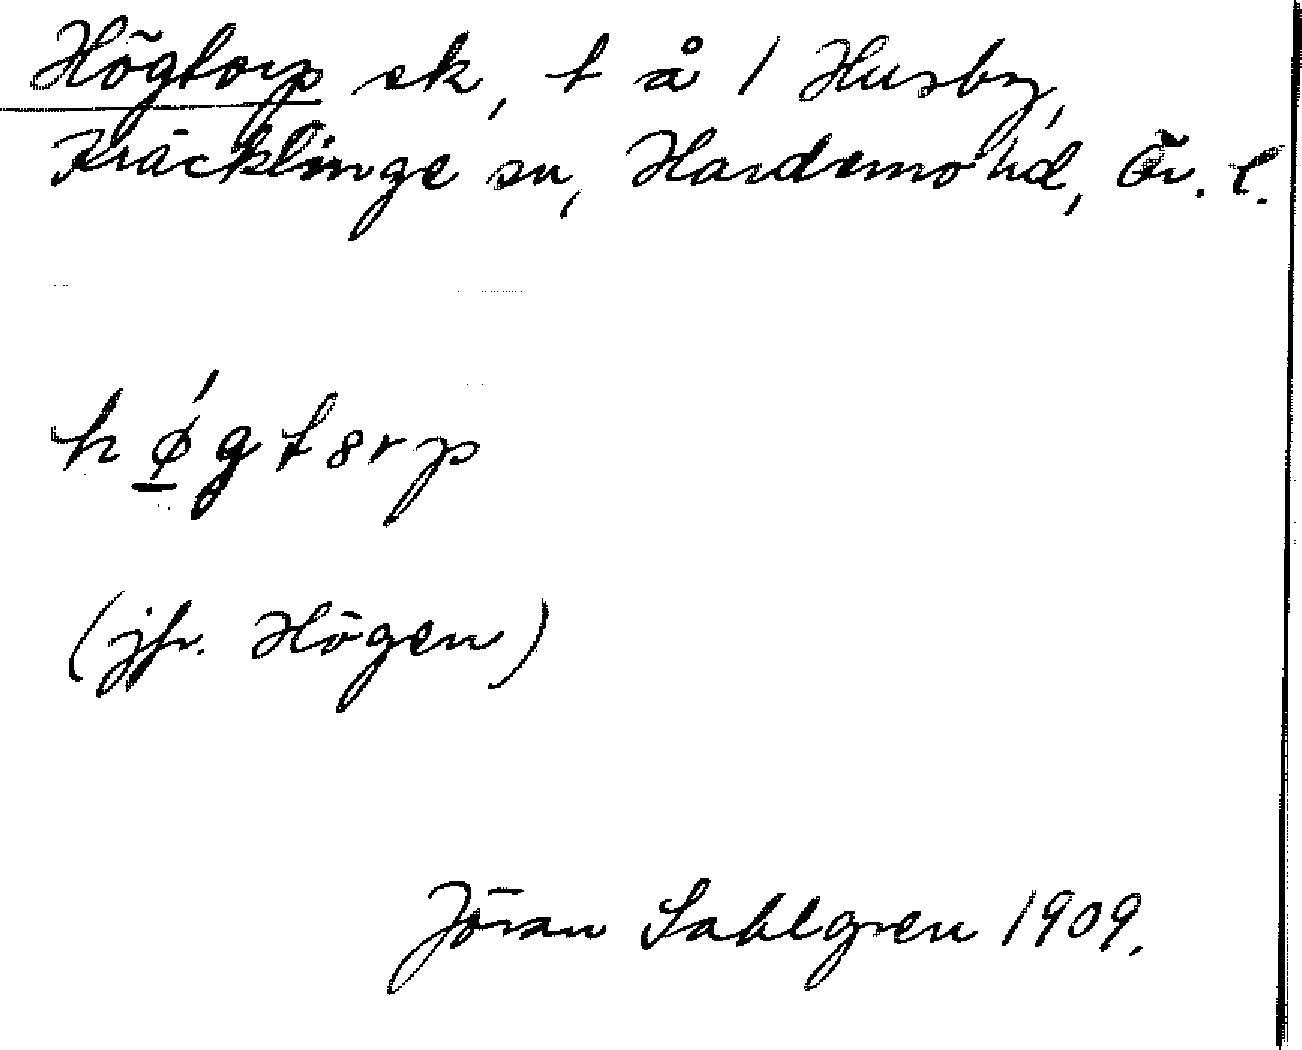 Högtorp sk, t å 1 Husby,
Kräcklinge sn, Hardemo hd, Ör. l.
hǿ̲gt8rp
(jfr. Högen)
Jöran Sahlgren 1909.